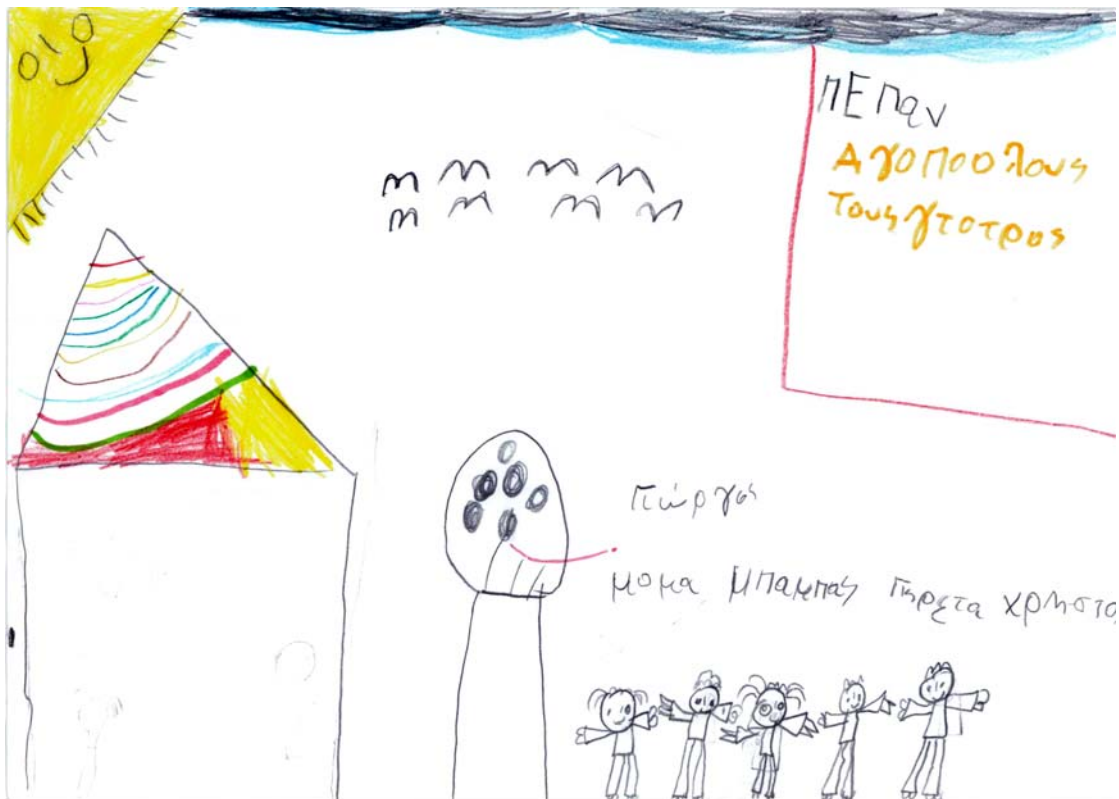 πΕπαν
Αγοποολους
Τους γτοτρος
Γιώργος
μομα Μπαμπας Γιηρετα χρηστο